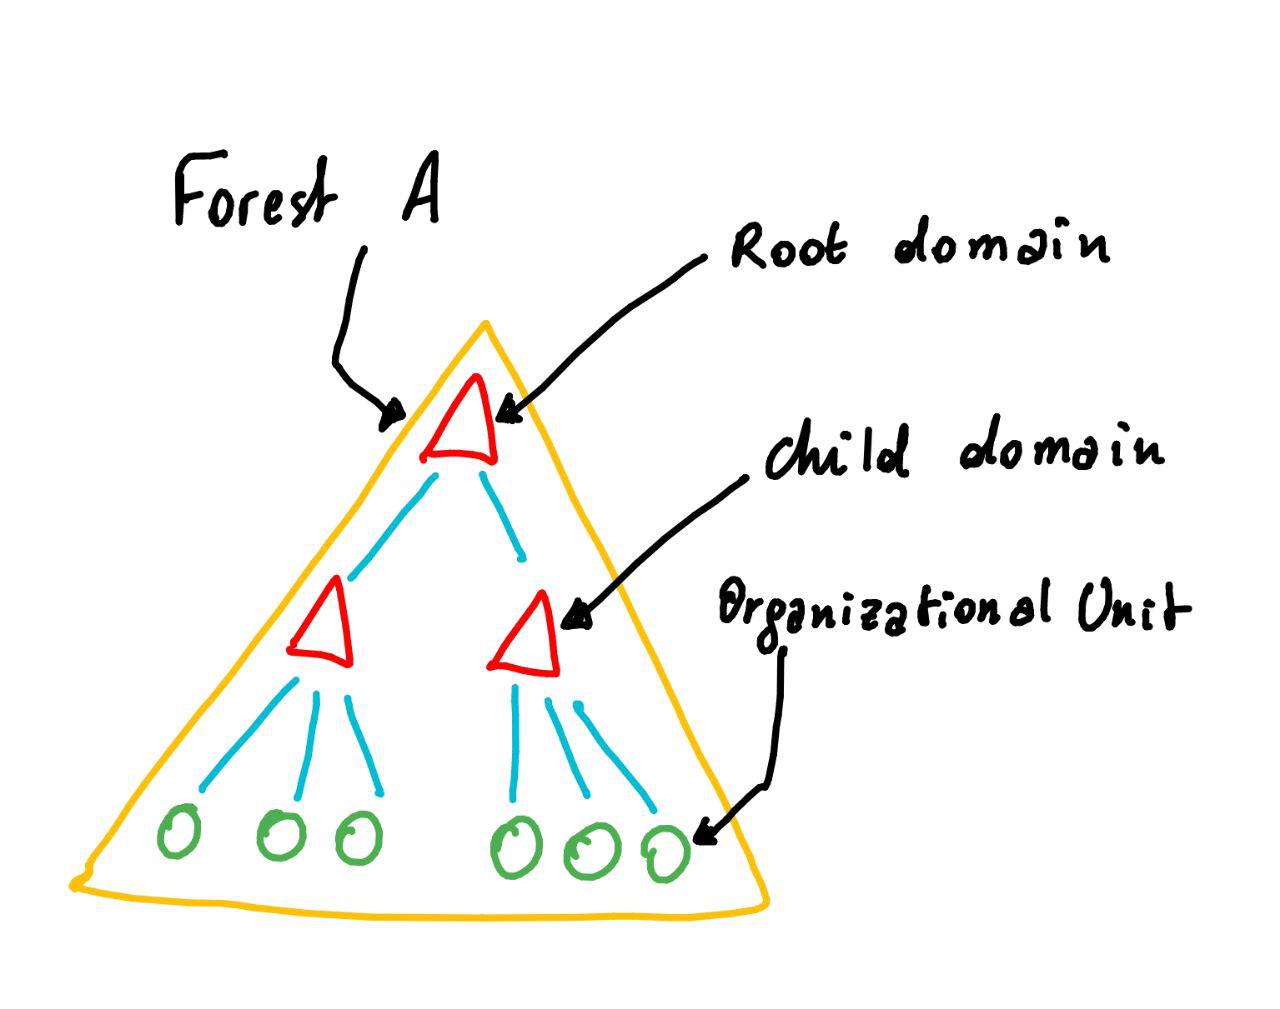 Forest A
Root domain
Child domain
Organizational Unit